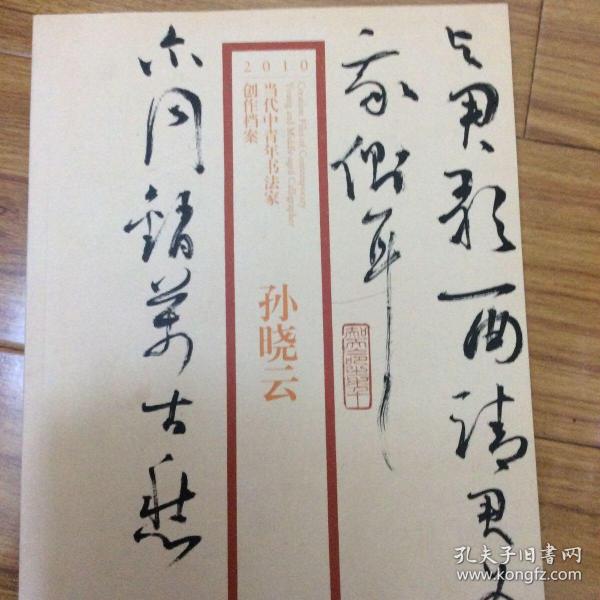 与君歌一曲请君
我倾耳
2010
当代中青年书法家
创作档案
Creation Files of Contemporary
Young and Middle-aged Calligrapher
孙晓云
尔同销万古愁
孔夫子旧书网
www.kongfz.com